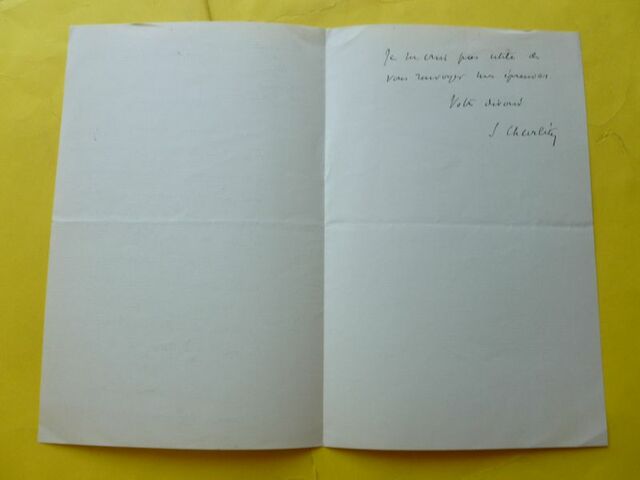 Je ne crois pas utile de
vous renvoyer mes épreuves
Votre dévoué